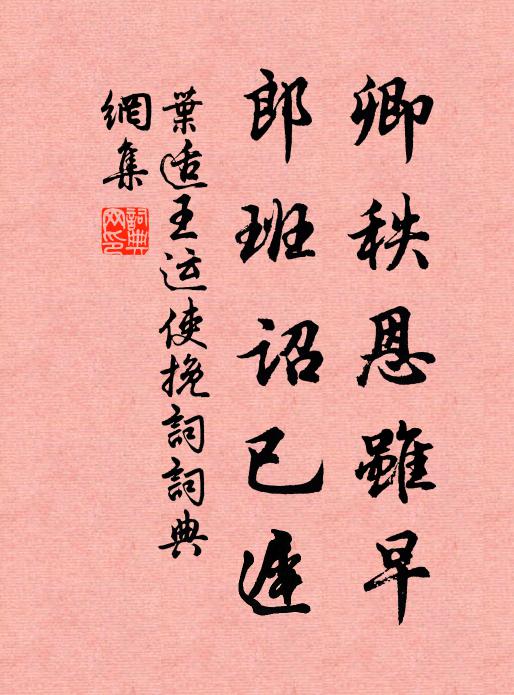 卿秩恩雖早
郎班詔已遲
葉适王运使挽詞詞典
網集
詞典网印